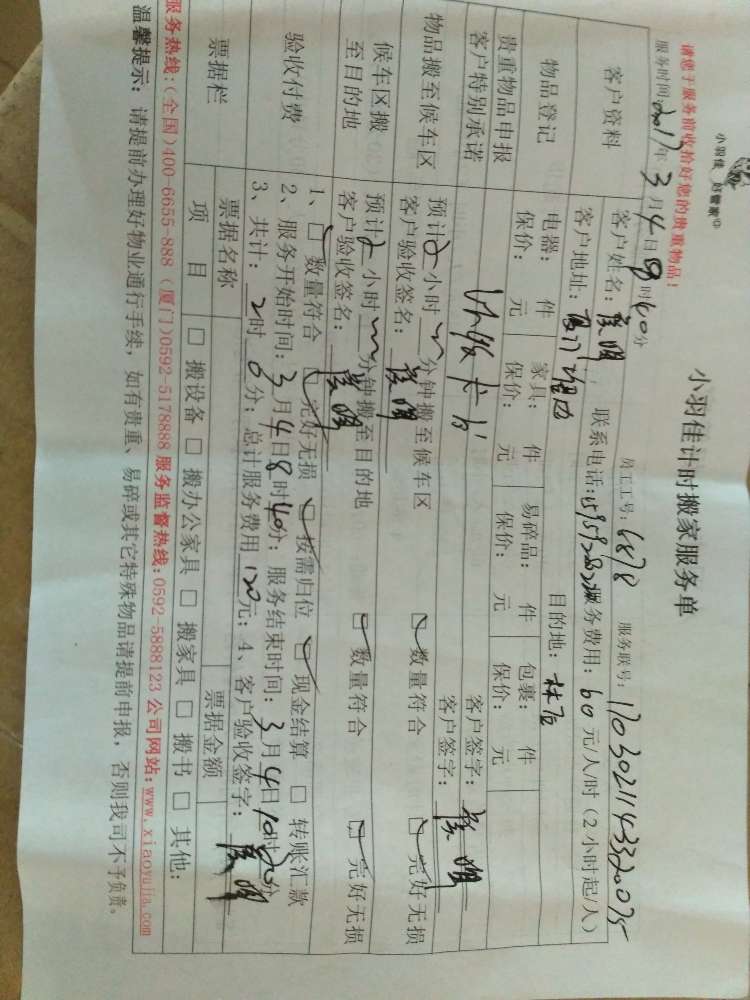 小羽佳 好管家
小羽佳计时搬家服务单
请您于服务前收拾好您的贵重物品！
员工工号：6878 服务联号：
服务时间：2017年3月4日8时40分
客户资料
客户姓名： 联系电话： 服务费用：60元/人/时（2小时起/人）
客户地址： 目的地：
物品登记
电器： 件 家具： 件 易碎品： 件 包裹： 件
保价： 元 保价： 元 保价： 元 保价： 元
贵重物品申报
客户特别承诺
客户签字：
物品搬至候车区
预计2小时 分钟搬至候车区 □数量符合 □完好无损
客户验收签名： 客户签字：
候车区搬
至目的地
预计2小时 分钟搬至目的地 □数量符合 □完好无损
客户验收签名：
验收付费
1、□数量符合 □完好无损 □按需归位 □现金结算 □转账汇款
2、服务开始时间：3月4日8时40分；服务结束时间：3月4日10时40分
3、共计：2时0分；总计服务费用120元；4、客户验收签字：
票据栏
票据名称 票据金额
项目 □搬设备 □搬办公家具 □搬家具 □搬书 □其他：
服务热线：（全国）400-6655-888（厦门）0592-5178888 服务监督热线：0592-5888123 公司网站：www.xiaoyujia.com
温馨提示：请提前办理好物业通行手续，如有贵重、易碎或其它特殊物品请提前申报，否则我司不予负责。